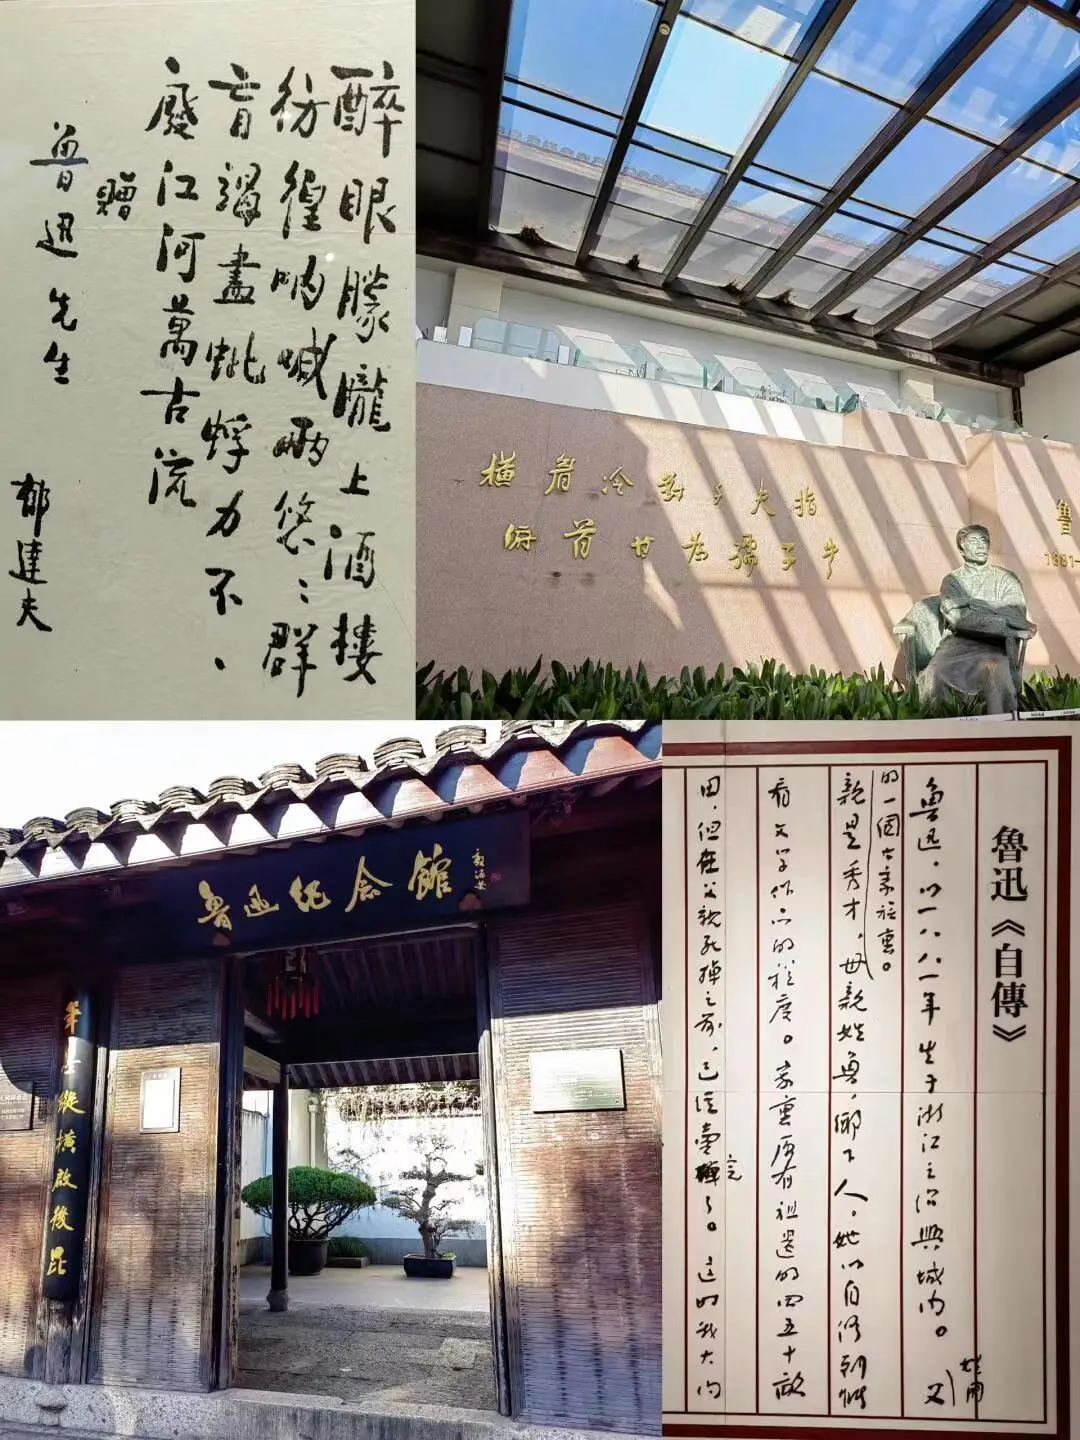 醉眼朦朧上酒樓
彷徨吶喊兩悠〻群
盲竭盡蚍蜉力不、
廢江河萬古流
贈
魯迅先生
郁達夫
橫眉冷對千夫指
俯首甘為孺子牛
魯
1881-
魯迅纪念館
郭沫若
縱橫啟後昆
魯迅《自傳》
魯迅，以一八八一年生于浙江之绍興城内。父
姓周
的一個大家族里。
親是秀才，母親姓魯，鄉下人，她以自修到能
看文学作品的程度。家里原有祖遺的四五十畝
田，但在父親死掉之前，已经賣完了。这时我大约